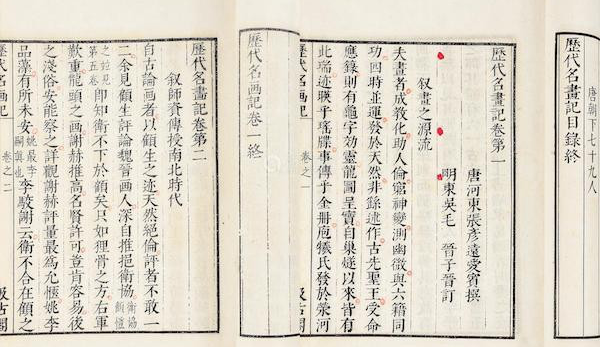 唐朝下七十九人
歷代名畫記目錄終
歷代名畫記卷第一
唐河東張彥遠愛賓撰
明東吳毛 晉子晉訂
叙畫之源流
夫畫者成教化助人倫窮神變測幽微與六籍同
功四時並運發於天然非繇述作古先聖王受命
應籙則有龜字效靈龍圖呈寶自巢燧以來皆有
此瑞迹暎乎瑤牒事傳乎金册庖犧氏發於滎河
歷代名畫記 卷之一 汲古閣
歷代名画記卷一終
歷代名畫記卷第二
叙師資傳授南北時代
自古論画者以顧生之迹天然絕倫評者不敢一
二余見顧生評論魏晉画人深自推挹衛協衛協顧愷
之並見第五卷即知衛不下於顧矣只如狸骨之方右軍
歎重龍頭之画謝赫推高名賢許可豈肯容易後
之淺俗安能察之詳觀謝赫評量最為允愜姚李
品藻有所未安姚最李嗣真也李駁謝云衛不合在顧之
歷代名画記 卷之二 汲古閣